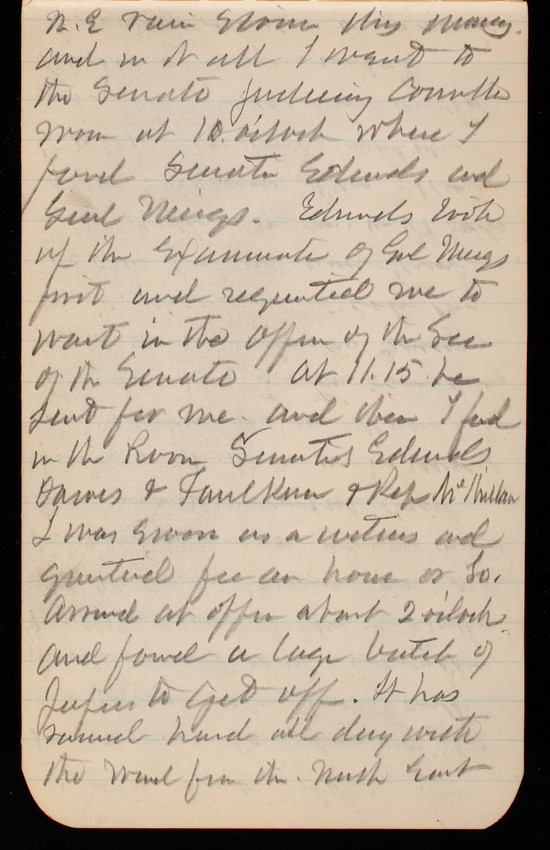 N. E rain storm this morning.
and in it all I went to
the Senate Judiciary Committee
room at 10. o'clock where I
found Senator Edmunds and
Genl Meigs. Edmunds took
up the examination of Genl Meigs
first and requested me to
wait in the office of the Sec
of the Senate. At 11.15 he
sent for me. and then I found
in the Room Senators Edmunds
Dawes & Faulkner & Rep McMillan
I was sworn as a witness and
questioned for an hour or so.
Arrived at office about 2 o'clock
and found a large batch of
papers to get off. It has
rained hard all day with
the wind from the. North East